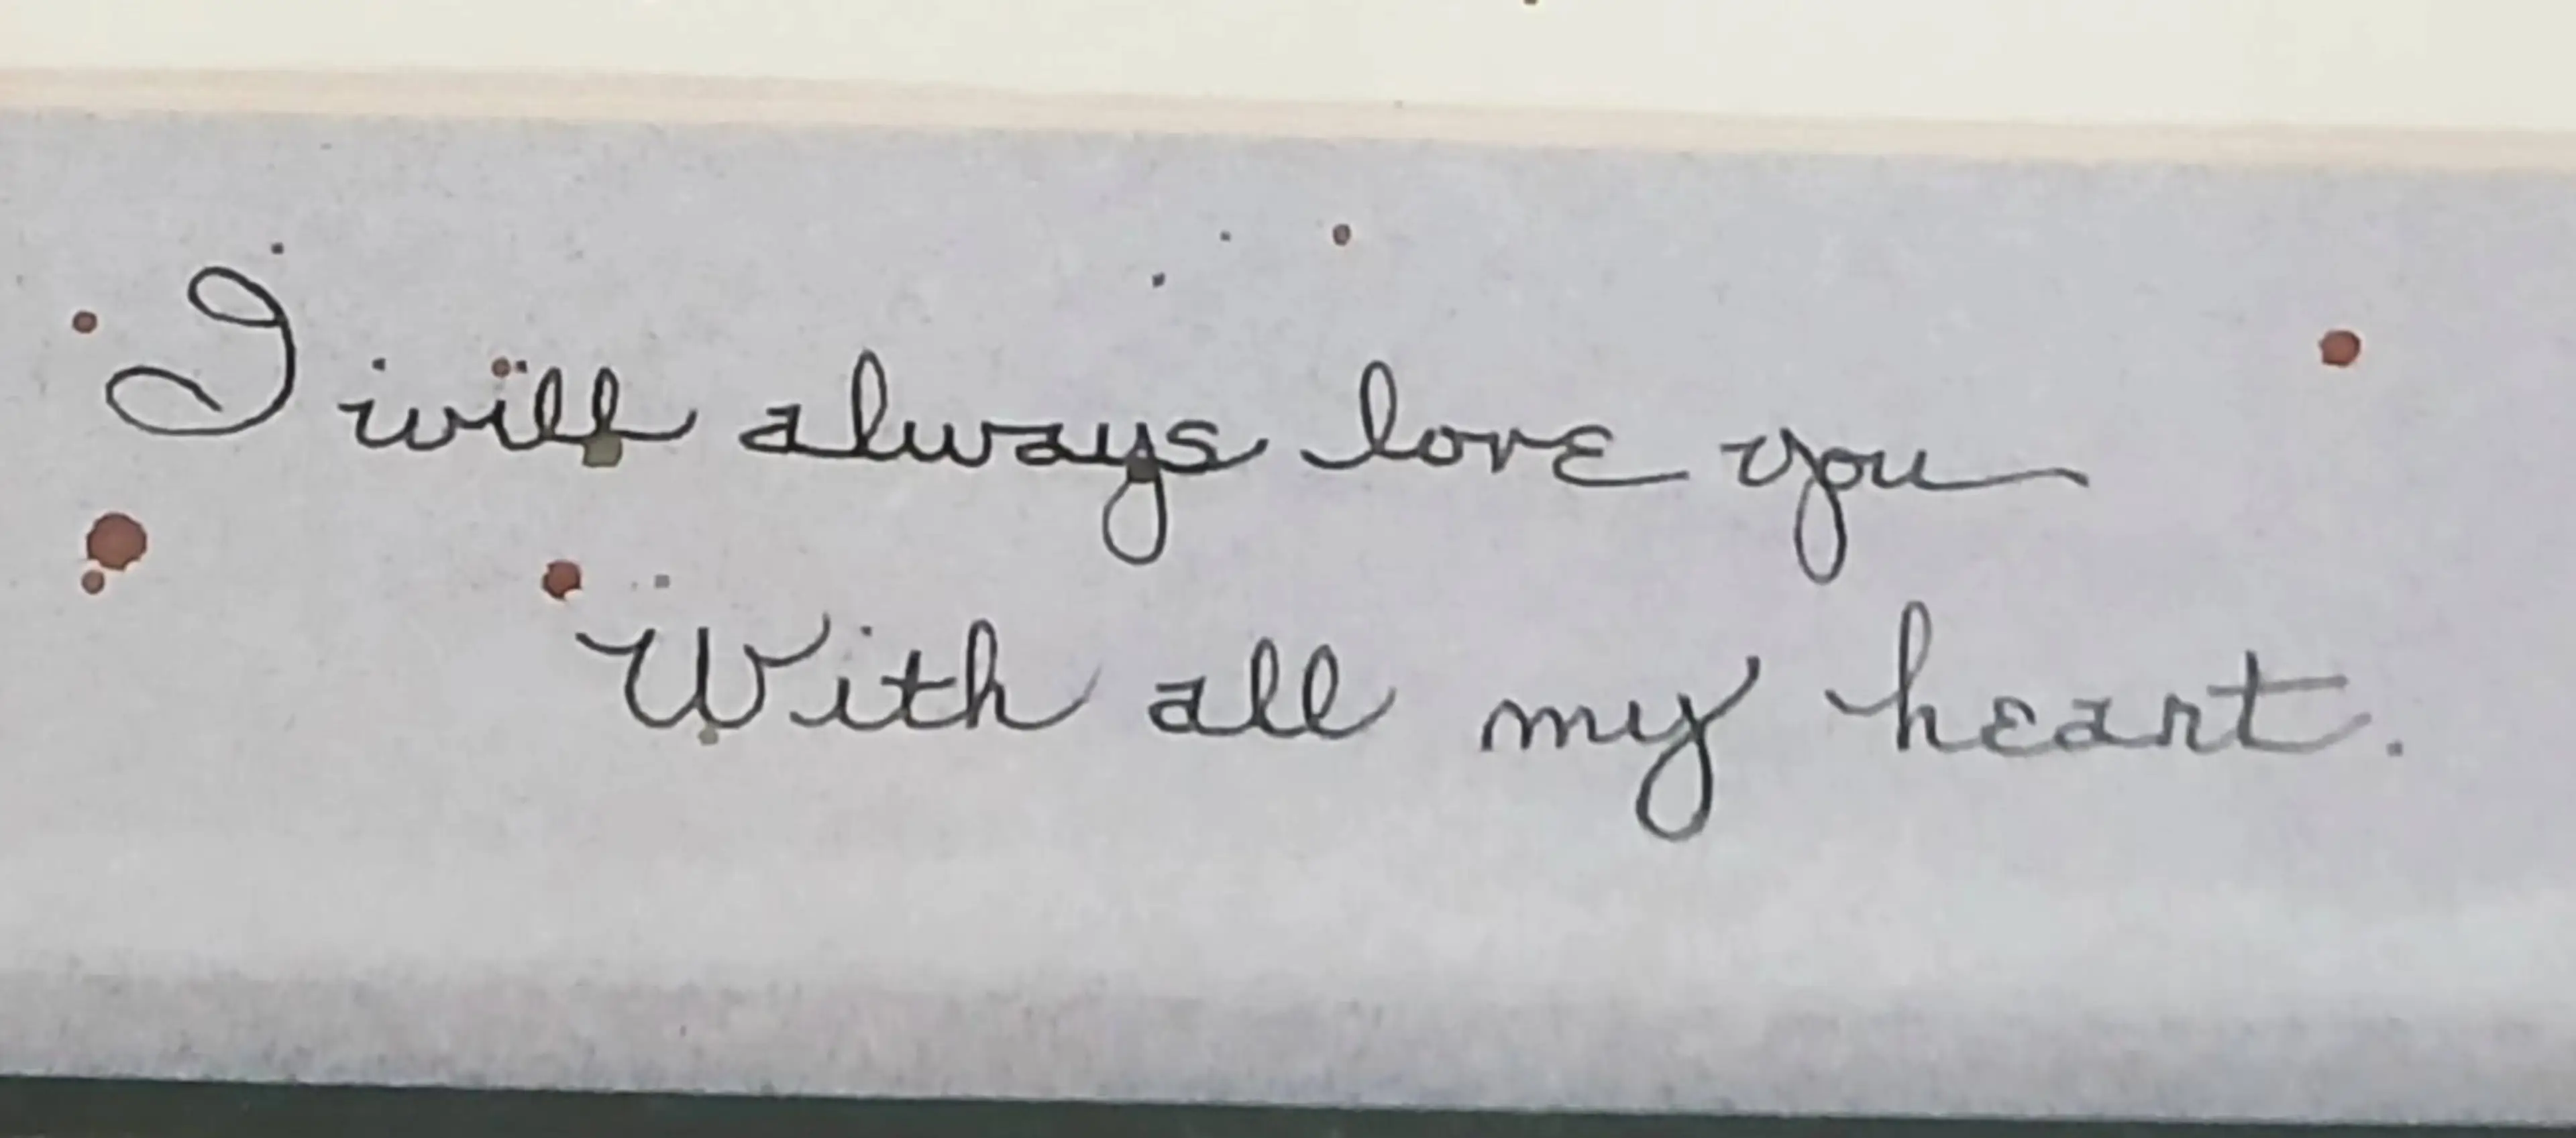 I will always love you
With all my heart.